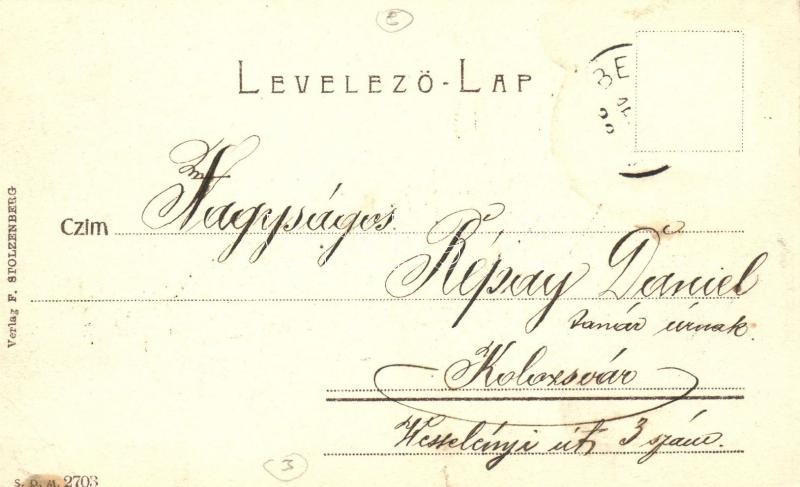 2
LEVELEZŐ-LAP
BE
Czim Nagyságos
Répay Dániel
tanár úrnak
Kolozsvár
Wesselényi út 3 szám.
3
Verlag F. STOLZENBERG
S. D. M. 2703